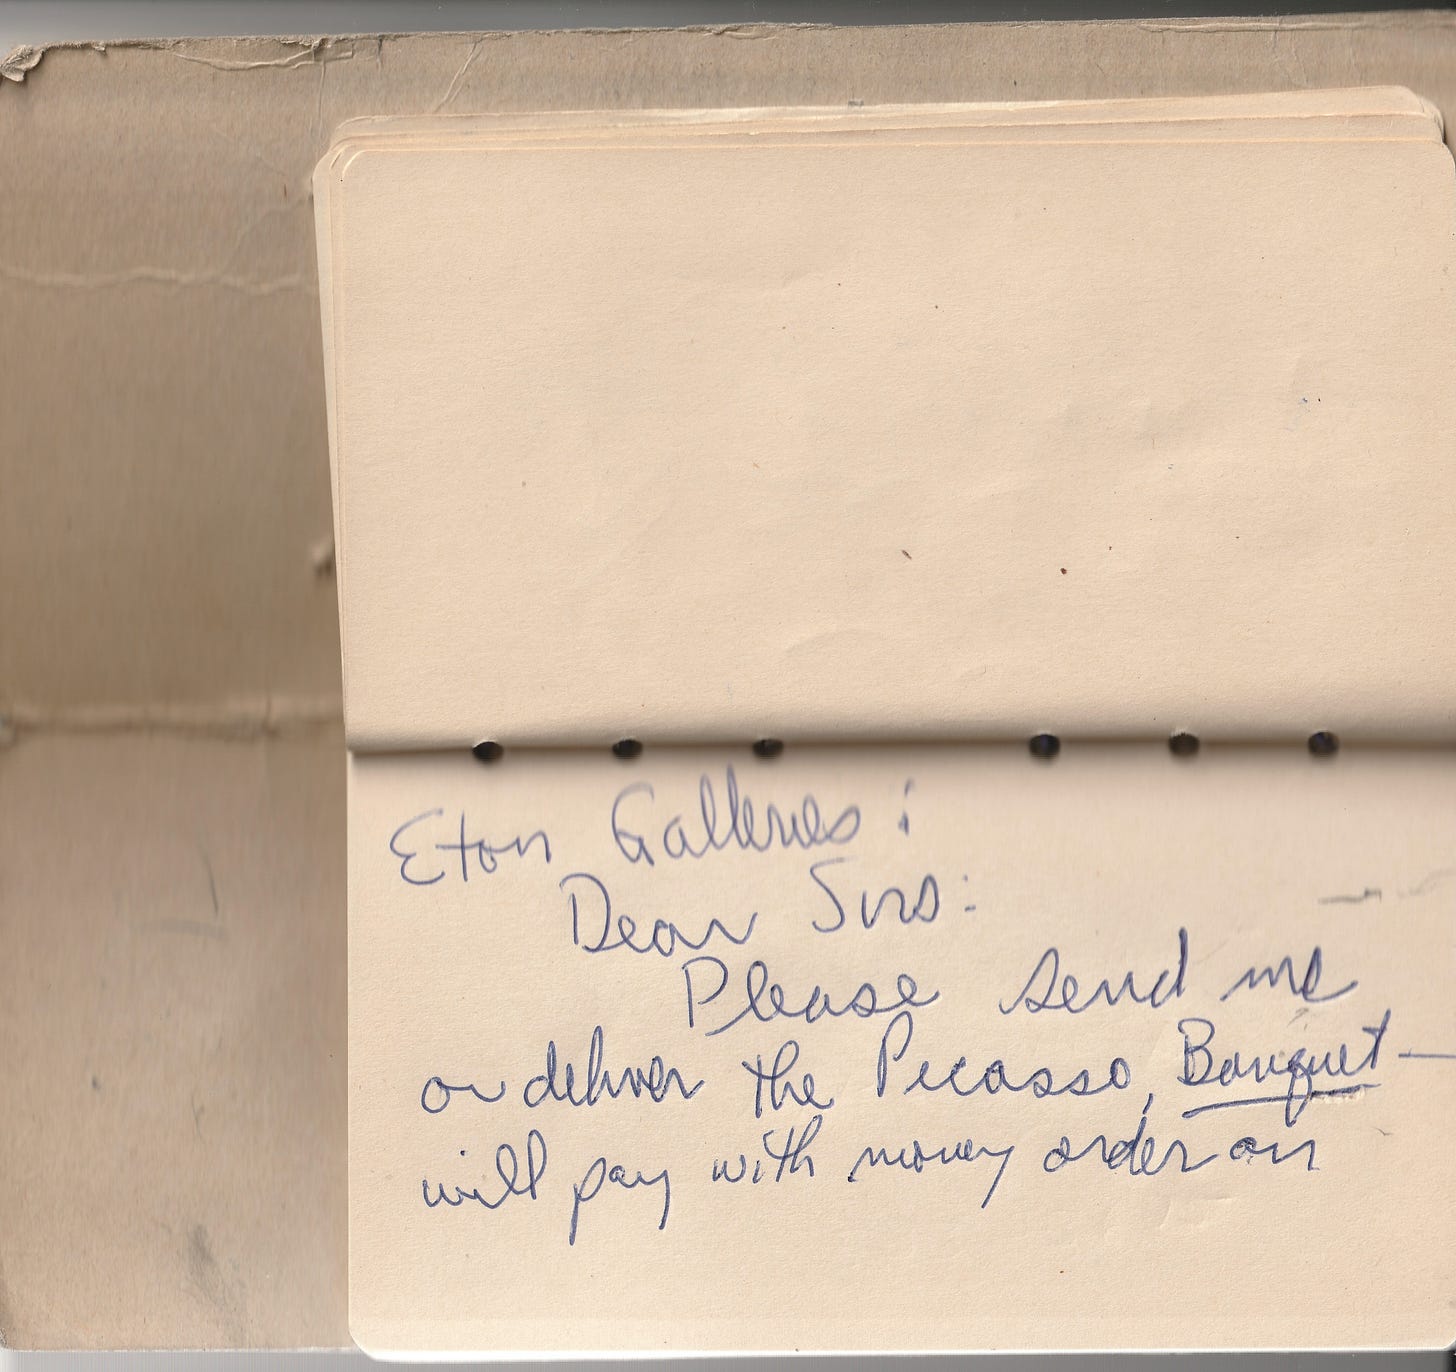 Eton Galleries:
Dear Sirs:
Please send me
or deliver the Picasso, Bouquet—
will pay with money order on